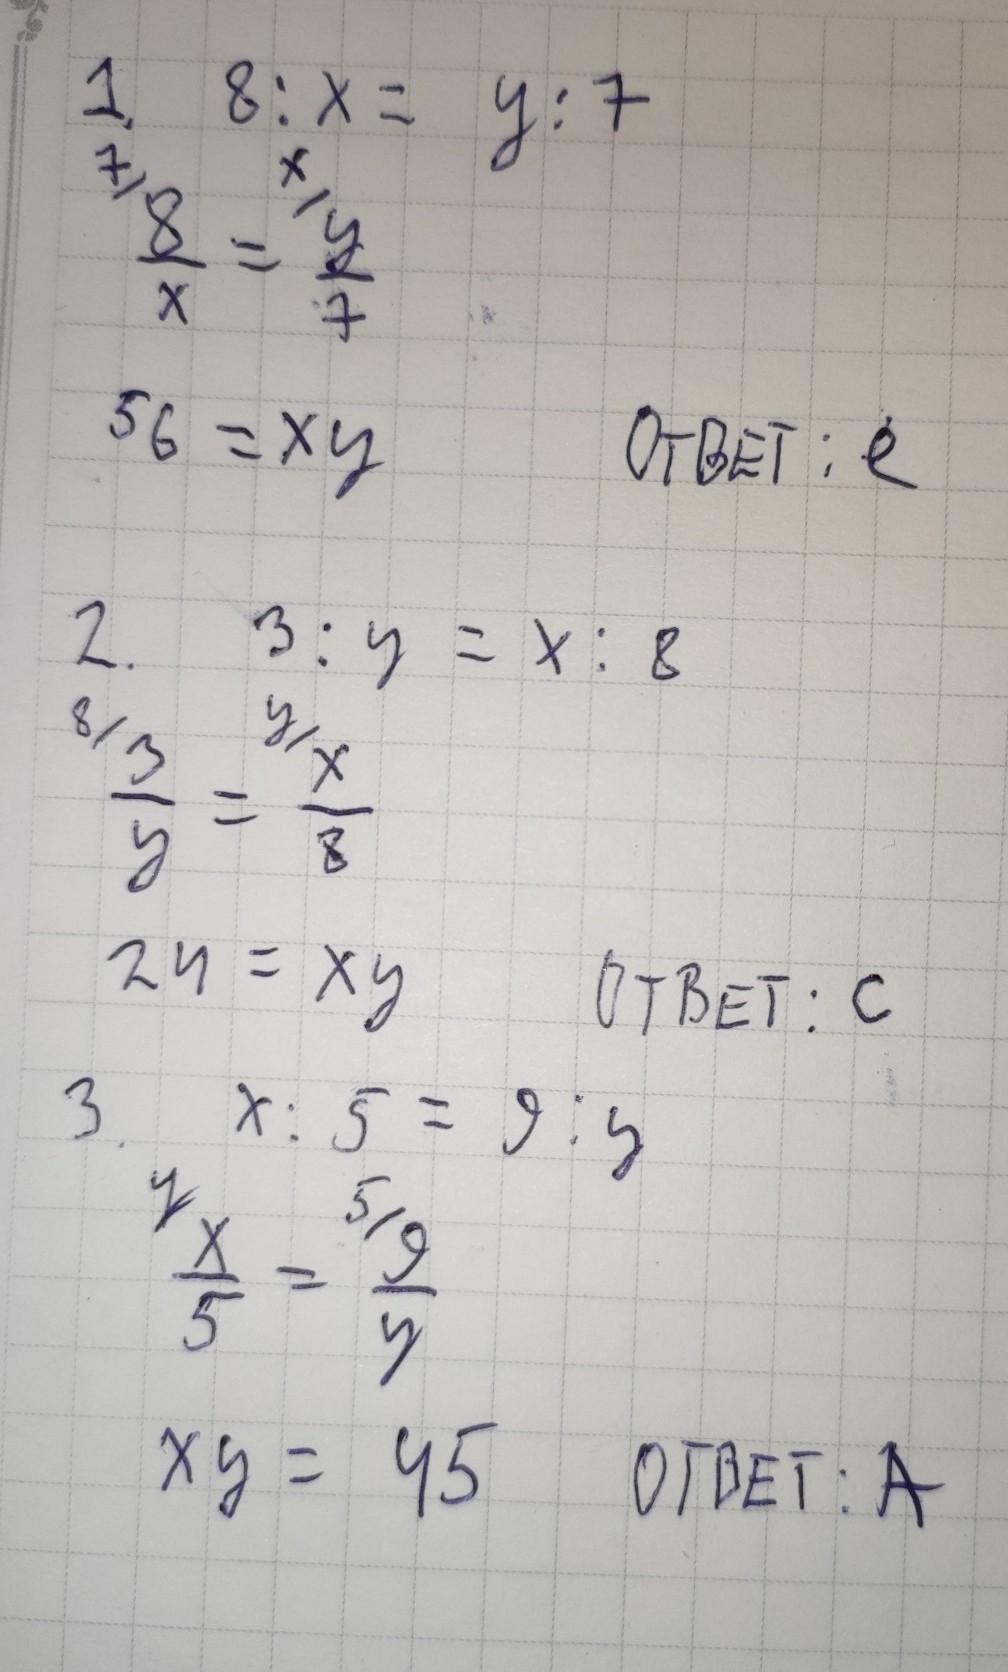 1. 8 : x = y : 7
7/ x/
8 = y
x 7
56 = xy ОТВЕТ : е
2. 3 : y = x : 8
8/ y/
3 = x
y 8
24 = xy ОТВЕТ : С
3. x : 5 = 9 : y
y/ 5/
x = 9
5 y
xy = 45 ОТВЕТ : А